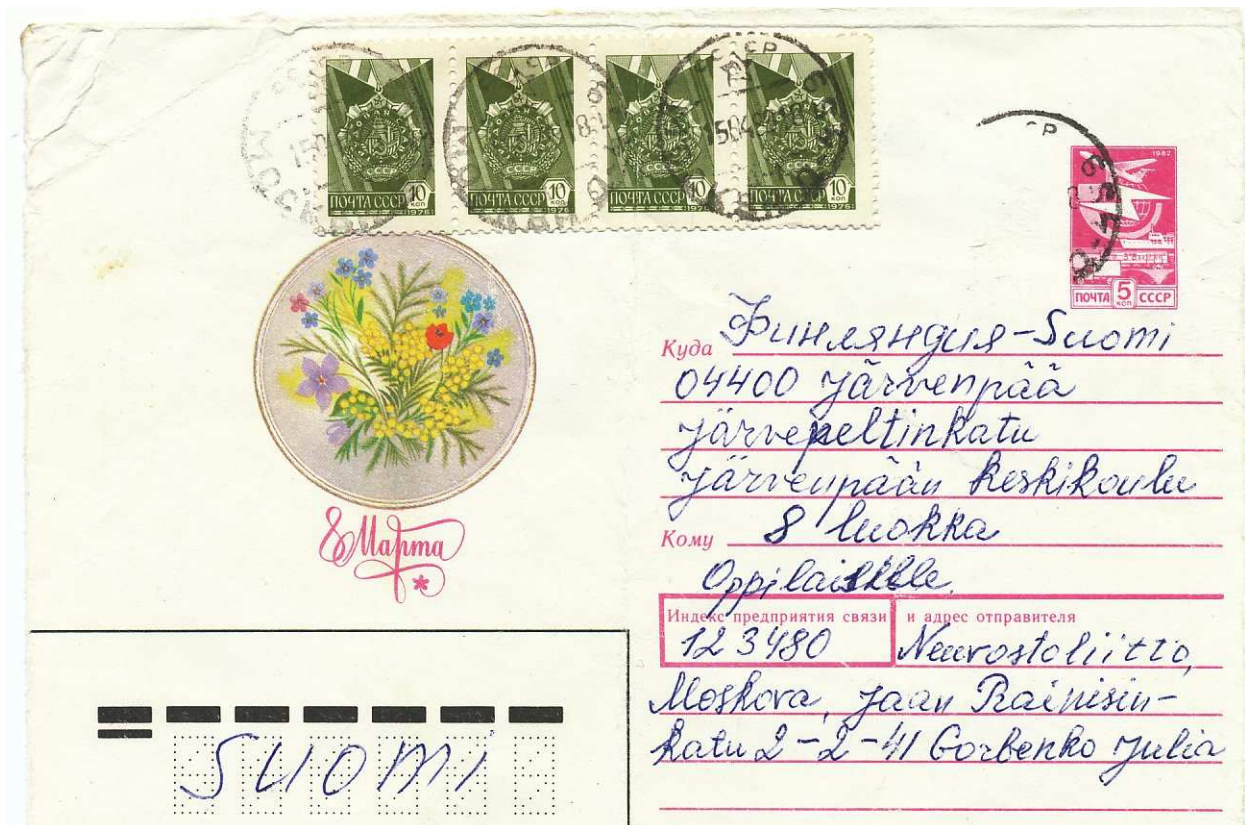 ПОЧТА СССР 10 КОП 1976
ПОЧТА СССР 10 КОП 1976
ПОЧТА СССР 10 КОП 1976
ПОЧТА СССР 10 КОП 1976
1982
ПОЧТА 5 КОП СССР
8 Марта
Куда Финляндия-Suomi
04400 Järvenpää
Järvepeltinkatu
Järvenpään keskikoulu
Кому 8 luokka
Oppilaille.
Индекс предприятия связи и адрес отправителя
123480 Neuvostoliitto,
Moskova, Jaan Rainisin-
katu 2-2-41 Gorbenko Julia
SUOMI